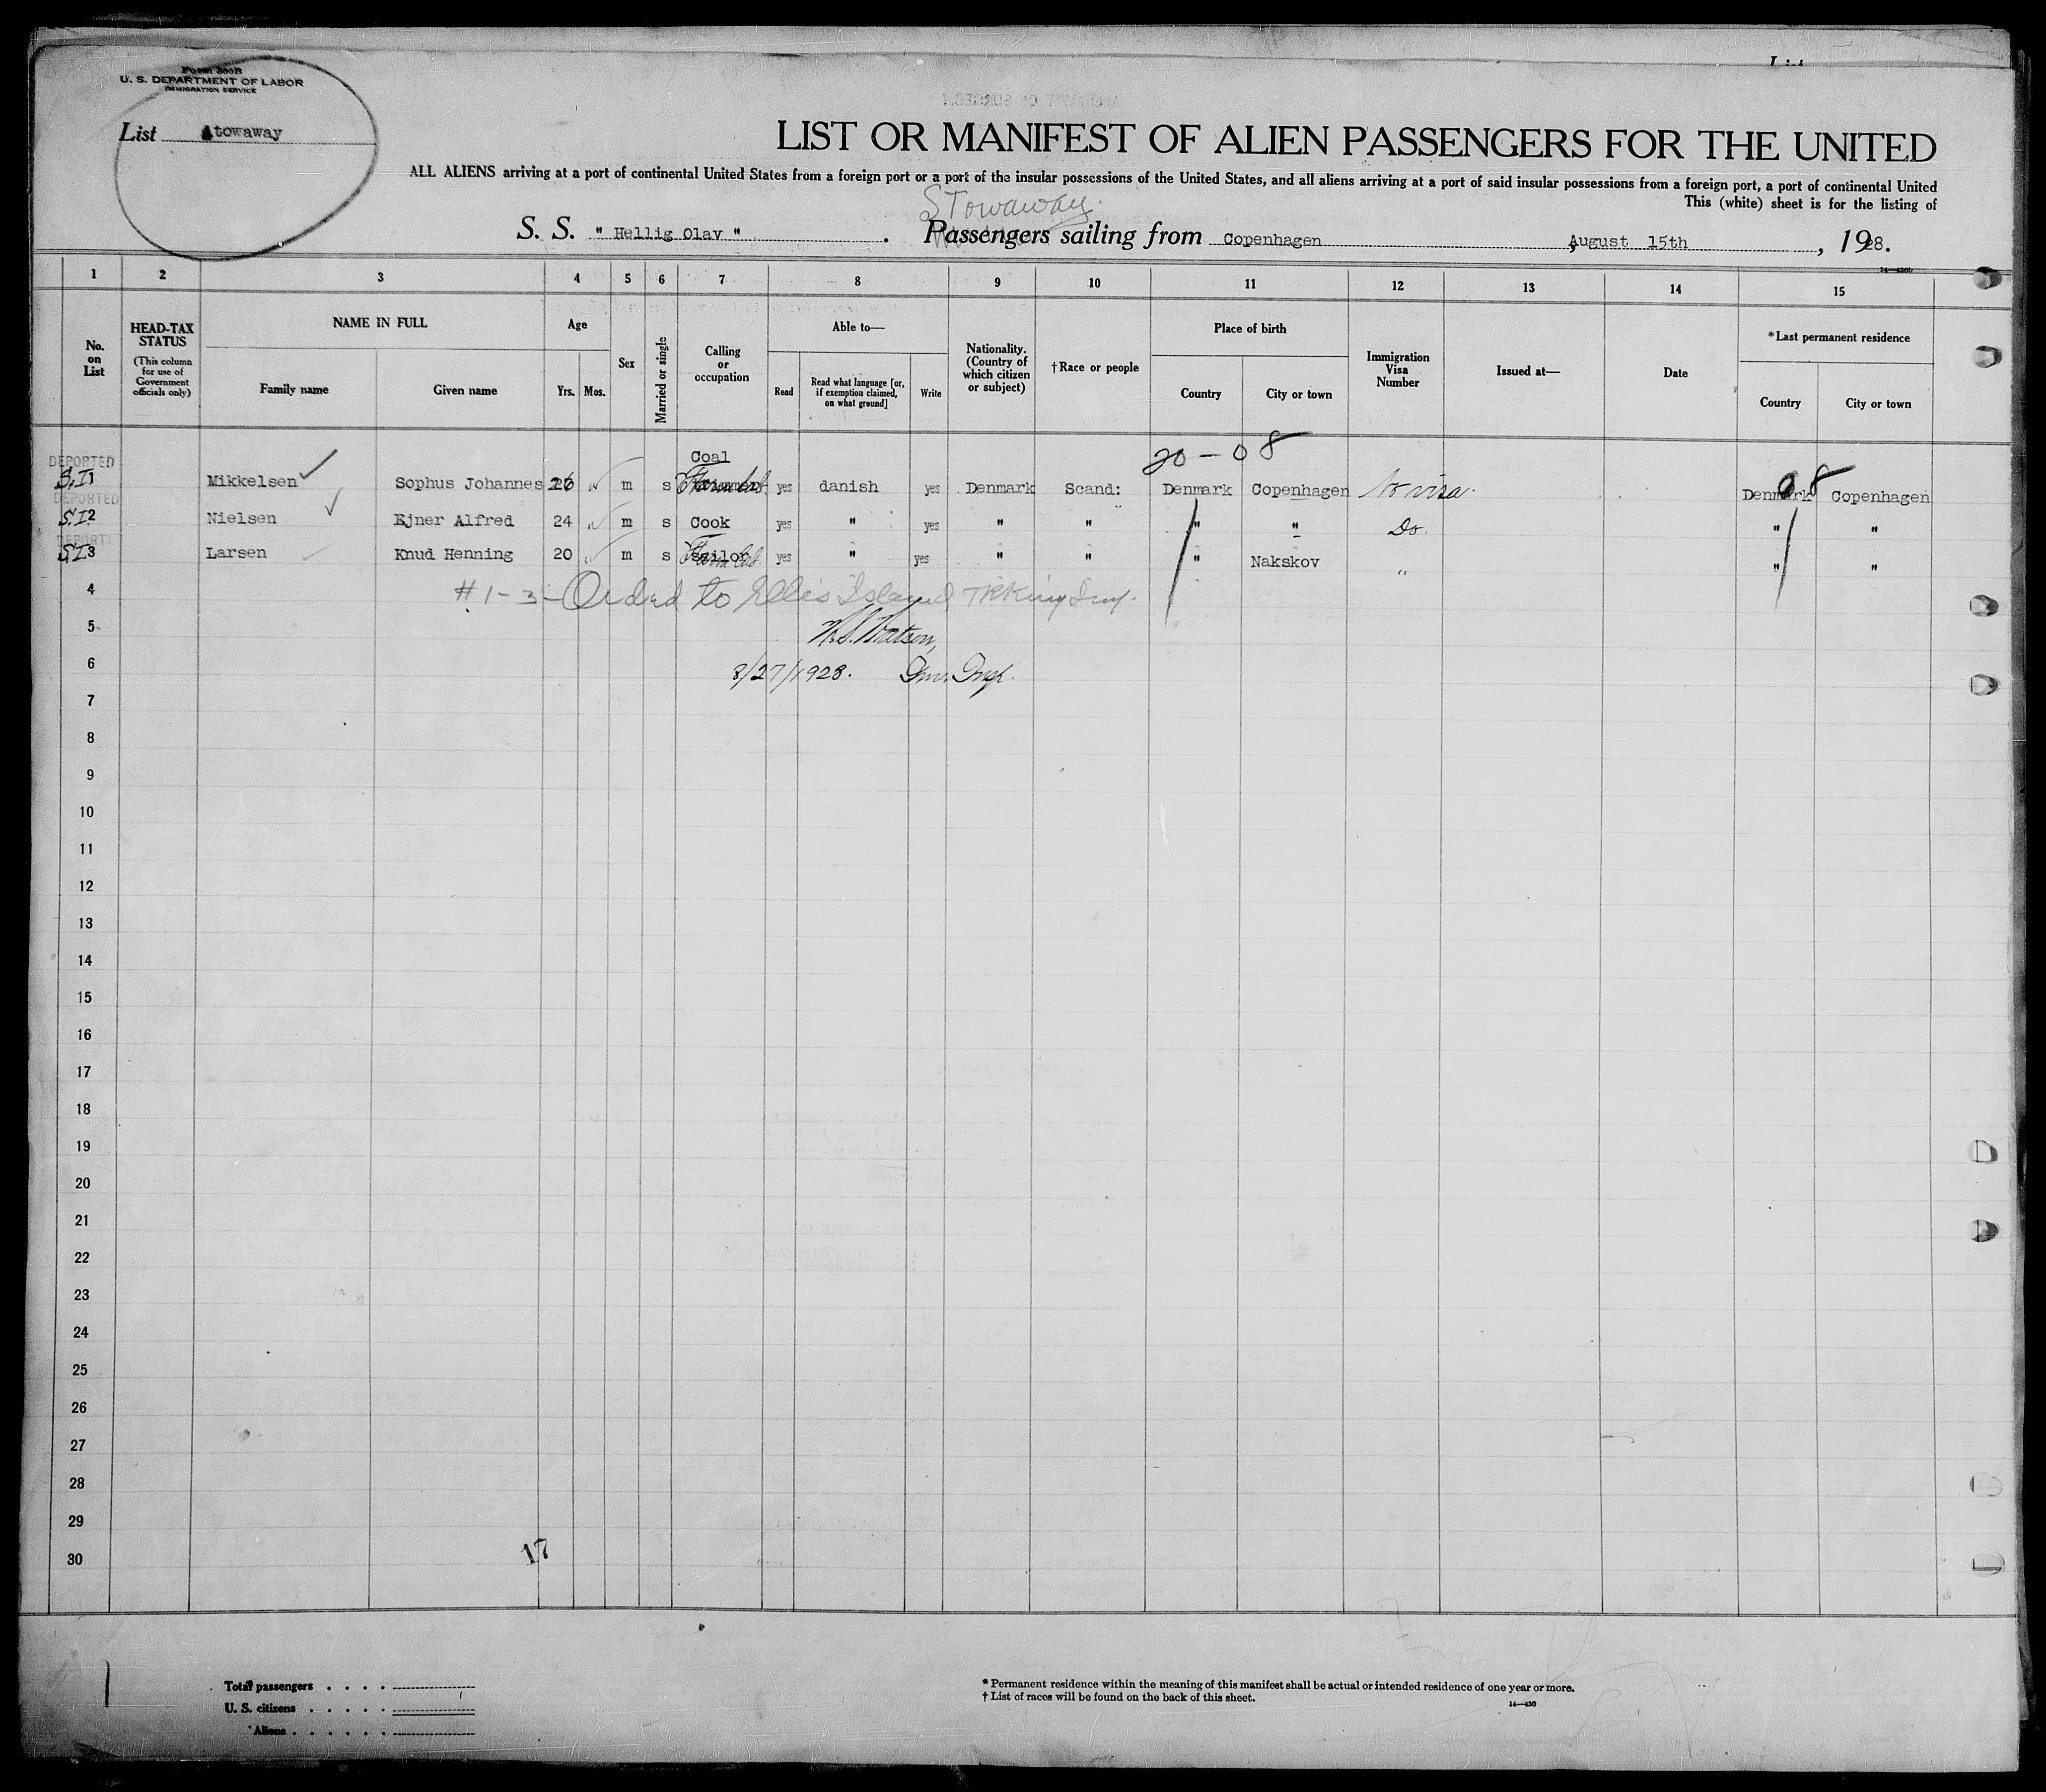 Form 500B
U. S. DEPARTMENT OF LABOR
IMMIGRATION SERVICE
List Stowaway
LIST OR MANIFEST OF ALIEN PASSENGERS FOR THE UNITED
ALL ALIENS arriving at a port of continental United States from a foreign port or a port of the insular possessions of the United States, and all aliens arriving at a port of said insular possessions from a foreign port, a port of continental United
This (white) sheet is for the listing of
Stowaway
S. S. " Hellig Olav " . Passengers sailing from Copenhagen , August 15th , 1928.
1 2 3 4 5 6 7 8 9 10 11 12 13 14 15
No. on List
HEAD-TAX STATUS
(This column for use of Government officials only)
NAME IN FULL
Family name
Given name
Age
Yrs.
Mos.
Sex
Married or single
Calling or occupation
Able to—
Read
Read what language [or, if exemption claimed, on what ground]
Write
Nationality. (Country of which citizen or subject)
†Race or people
Place of birth
Country
City or town
Immigration Visa Number
Issued at—
Date
*Last permanent residence
Country
City or town
20-08
DEPORTED
Coal
S.I. 1 Mikkelsen Sophus Johannes 26 m s yes danish yes Denmark Scand: Denmark Copenhagen No visa. 08 Denmark Copenhagen
DEPORTED
S.I. 2 Nielsen Ejner Alfred 24 m s Cook yes " yes " " " " Do. " "
DEPORTED
S.I. 3 Larsen Knud Henning 20 m s yes " yes " " " Nakskov " " "
4 #1-3- Ordered to Ellis Island
5 Watson,
6 8/27/1928. Imm. Insp.
7
8
9
10
11
12
13
14
15
16
17
18
19
20
21
22
23
24
25
26
27
28
29
30
17
Total passengers
U. S. citizens
Aliens
* Permanent residence within the meaning of this manifest shall be actual or intended residence of one year or more.
† List of races will be found on the back of this sheet.
14—430